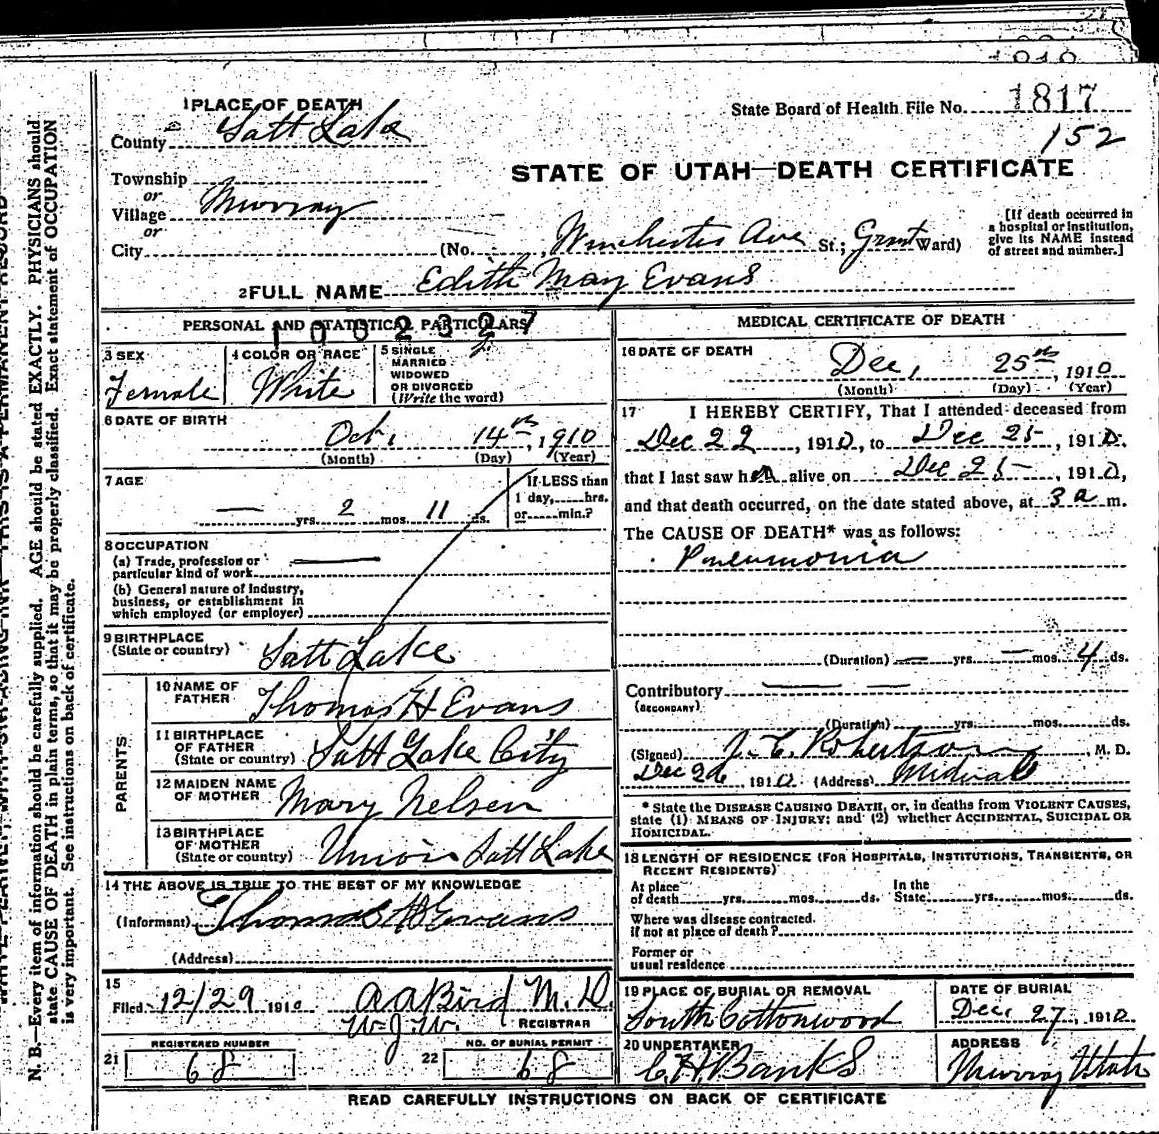 1 PLACE OF DEATH
State Board of Health File No. 1817
County Salt Lake
152
STATE OF UTAH—DEATH CERTIFICATE
Township
or
Village Murray
or
City (No. Winchester Ave St.; Grant Ward)
[If death occurred in a hospital or institution, give its NAME instead of street and number.]
2 FULL NAME Edith May Evans
PERSONAL AND STATISTICAL PARTICULARS
1002327
3 SEX
Female
4 COLOR OR RACE
White
5 SINGLE
MARRIED
WIDOWED
OR DIVORCED
(Write the word)
6 DATE OF BIRTH
Oct. 14th, 1910
(Month) (Day) (Year)
7 AGE
— yrs. 2 mos. 11 ds.
If LESS than
1 day, hrs.
or min.?
8 OCCUPATION
(a) Trade, profession or
particular kind of work
(b) General nature of Industry,
business, or establishment in
which employed (or employer)
9 BIRTHPLACE
(State or country) Salt Lake
PARENTS
10 NAME OF
FATHER Thomas H Evans
11 BIRTHPLACE
OF FATHER
(State or country) Salt Lake City
12 MAIDEN NAME
OF MOTHER Mary Nelsen
13 BIRTHPLACE
OF MOTHER
(State or country) Union Salt Lake
14 THE ABOVE IS TRUE TO THE BEST OF MY KNOWLEDGE
(Informant) Thomas H Evans
(Address)
15
Filed 12/29 1910 A A Bird M. D.
W.J.W. REGISTRAR
21 REGISTERED NUMBER
68
22 NO. OF BURIAL PERMIT
68
MEDICAL CERTIFICATE OF DEATH
16 DATE OF DEATH
Dec, 25th, 1910
(Month) (Day) (Year)
17 I HEREBY CERTIFY, That I attended deceased from
Dec 22, 1910, to Dec 25, 1910.
that I last saw her alive on Dec 25, 1910,
and that death occurred, on the date stated above, at 3 a m.
The CAUSE OF DEATH* was as follows:
Pneumonia
(Duration) — yrs. — mos. 4 ds.
Contributory
(SECONDARY)
(Duration) yrs. mos. ds.
(Signed) J. C. Robertson, M. D.
Dec 26, 1910 (Address) Midvale
* State the DISEASE CAUSING DEATH, or, in deaths from VIOLENT CAUSES, state (1) MEANS OF INJURY; and (2) whether ACCIDENTAL, SUICIDAL OR HOMICIDAL.
18 LENGTH OF RESIDENCE (FOR HOSPITALS, INSTITUTIONS, TRANSIENTS, OR
RECENT RESIDENTS)
At place
of death yrs. mos. ds.
In the
State yrs. mos. ds.
Where was disease contracted.
if not at place of death?
Former or
usual residence
19 PLACE OF BURIAL OR REMOVAL
South Cottonwood
DATE OF BURIAL
Dec. 27, 1910
20 UNDERTAKER
C. H. Banks
ADDRESS
Murray Utah
READ CAREFULLY INSTRUCTIONS ON BACK OF CERTIFICATE
N. B.—Every item of information should be carefully supplied. AGE should be stated EXACTLY. PHYSICIANS should
state CAUSE OF DEATH in plain terms, so that it may be properly classified. Exact statement of OCCUPATION
is very important. See instructions on back of certificate.